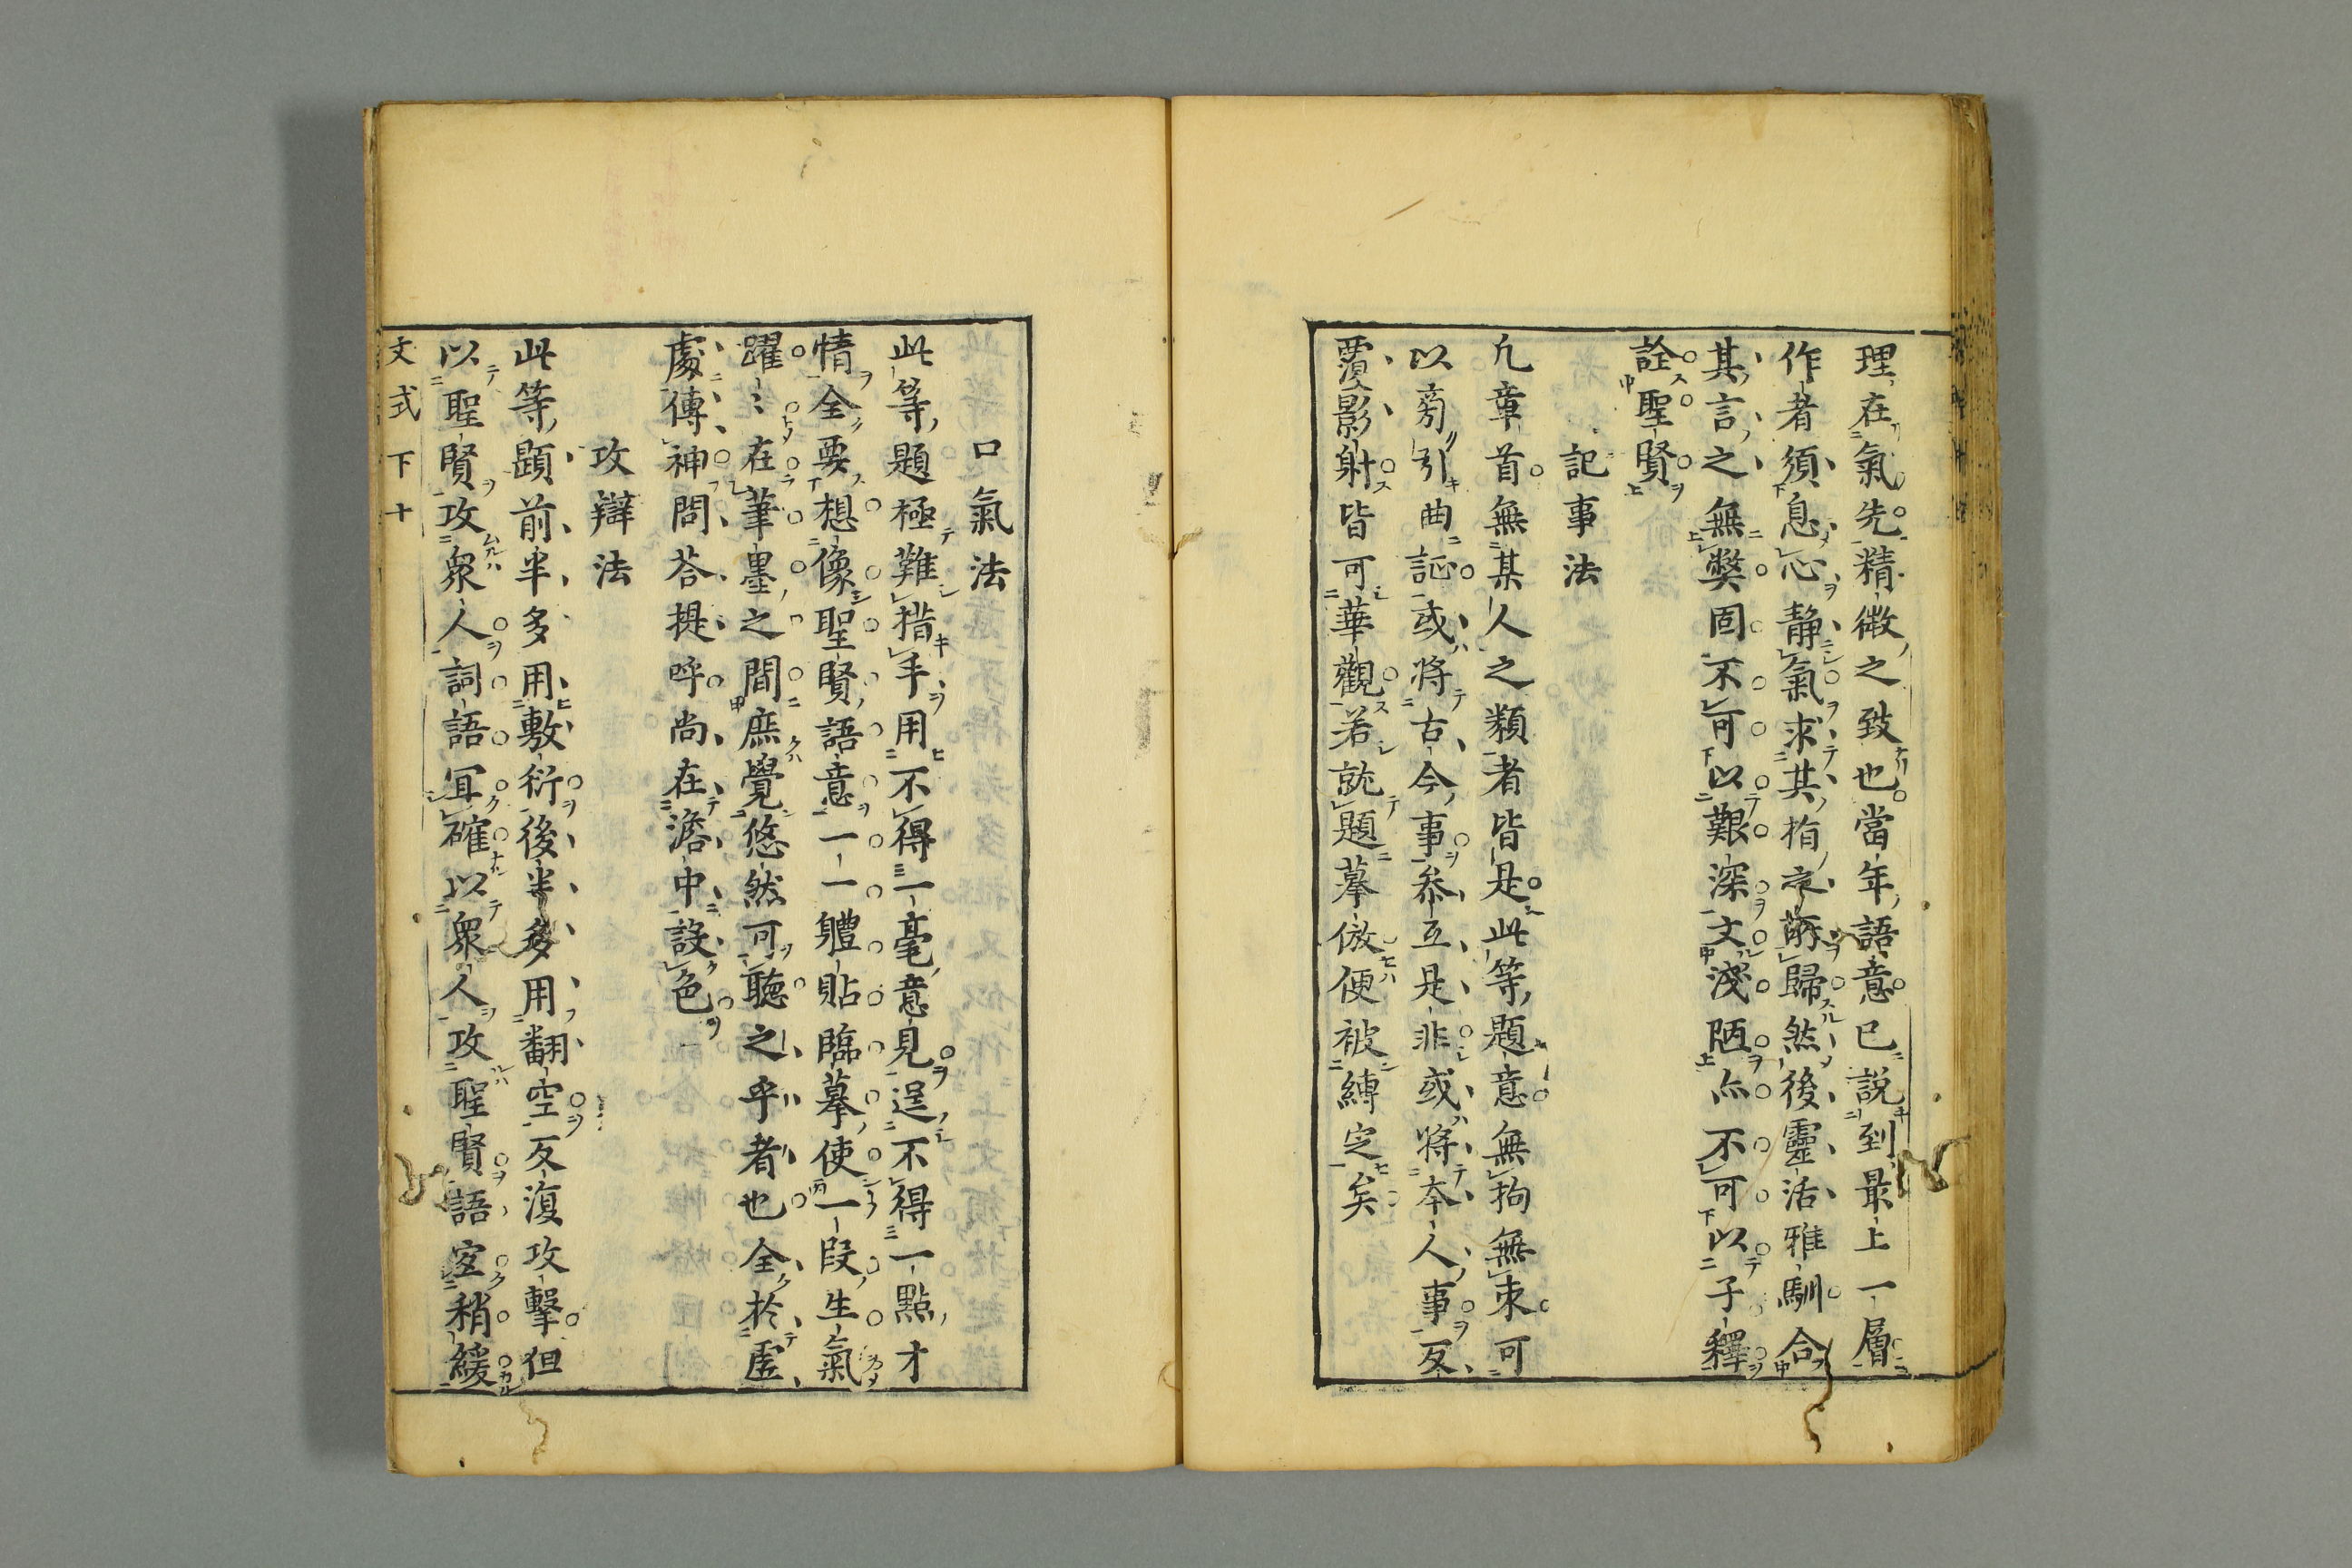 理在氣先精微之致也當年語意已説到最上一層
作者須息心靜氣求其㫖之所歸然後靈活雅馴合
其言之無弊固不可以艱深文淺陋亦不可以子釋
詮聖賢
記事法
凢章首無某人之類者皆是此等題意無拘無束可
以旁引曲証或將古今事叅互是非或將本人事反
覆影射皆可華觀若就題摹倣便被縛定矣
口氣法
此等題極難措手用不得一毫意見逞不得一點才
情全要想像聖賢語意一一體貼臨摹使一段生氣
躍〻在筆墨之間庶覺悠然可聽之乎者也全於虛
處傳神問荅提呼尚在澹中設色
攻辯法
此等題前半多用敷衍後半多用翻空反復攻擊但
以聖賢攻衆人詞語冝確以衆人攻聖賢語宜稍緩
文式 下 十